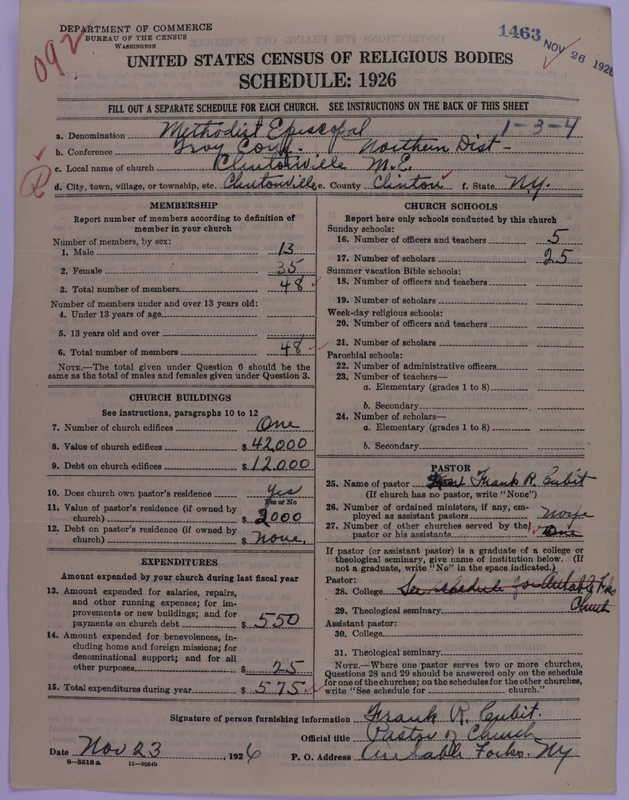 DEPARTMENT OF COMMERCE
BUREAU OF THE CENSUS
WASHINGTON
092
1463
NOV 26 1926
UNITED STATES CENSUS OF RELIGIOUS BODIES
SCHEDULE: 1926
FILL OUT A SEPARATE SCHEDULE FOR EACH CHURCH. SEE INSTRUCTIONS ON THE BACK OF THIS SHEET
a. Denomination Methodist Episcopal 1-3-4
b. Conference Troy Conf. Northern Dist-
c. Local name of church Clintonville M.E.
d. City, town, village, or township, etc. Clintonville e. County Clinton f. State N.Y.
MEMBERSHIP
Report number of members according to definition of member in your church
Number of members, by sex:
1. Male 13
2. Female 35
3. Total number of members 48
Number of members under and over 13 years old:
4. Under 13 years of age
5. 13 years old and over
6. Total number of members 48
NOTE.—The total given under Question 6 should be the same as the total of males and females given under Question 3.
CHURCH BUILDINGS
See instructions, paragraphs 10 to 12
7. Number of church edifices One
8. Value of church edifices $ 42,000
9. Debt on church edifices $ 12,000
10. Does church own pastor's residence Yes
Yes or No
11. Value of pastor's residence (if owned by church) $ 2000
12. Debt on pastor's residence (if owned by church) $ None.
EXPENDITURES
Amount expended by your church during last fiscal year
13. Amount expended for salaries, repairs, and other running expenses; for improvements or new buildings; and for payments on church debt $ 550
14. Amount expended for benevolences, including home and foreign missions; for denominational support; and for all other purposes $ 25
15. Total expenditures during year $ 575
CHURCH SCHOOLS
Report here only schools conducted by this church
Sunday schools:
16. Number of officers and teachers 5
17. Number of scholars 25
Summer vacation Bible schools:
18. Number of officers and teachers
19. Number of scholars
Week-day religious schools:
20. Number of officers and teachers
21. Number of scholars
Parochial schools:
22. Number of administrative officers
23. Number of teachers—
a. Elementary (grades 1 to 8)
b. Secondary
24. Number of scholars—
a. Elementary (grades 1 to 8)
b. Secondary
PASTOR
25. Name of pastor Frank R. Cubit
(If church has no pastor, write "None")
26. Number of ordained ministers, if any, employed as assistant pastors None
27. Number of other churches served by the pastor or his assistants 1
If pastor (or assistant pastor) is a graduate of a college or theological seminary, give name of institution below. (If not a graduate, write "No" in the space indicated.)
Pastor:
28. College See schedule for AuSable Forks
Church
29. Theological seminary
Assistant pastor:
30. College
31. Theological seminary
NOTE.—Where one pastor serves two or more churches, Questions 28 and 29 should be answered only on the schedule for one of the churches; on the schedules for the other churches, write "See schedule for ____ church."
Signature of person furnishing information Frank R. Cubit.
Official title Pastor of Church
Date Nov 23, 1926 P. O. Address AuSable Forks. NY
8-5518a 11-9164b